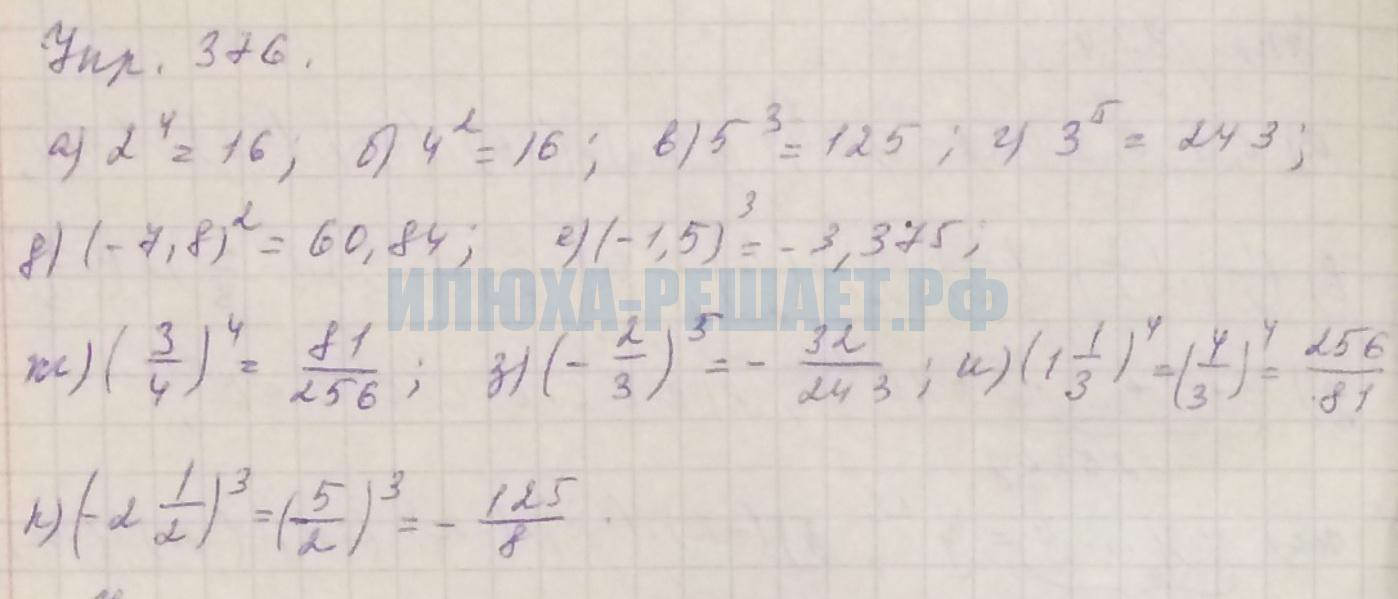 Упр. 376.
а) 2⁴ = 16; б) 4² = 16; в) 5³ = 125; г) 3⁵ = 243;
д) (-7,8)² = 60,84; е) (-1,5)³ = -3,375;
ИЛЮХА-РЕШАЕТ.РФ
ж) (3/4)⁴ = 81/256; з) (-2/3)⁵ = -32/243; и) (1 1/3)⁴ = (4/3)⁴ = 256/81
к) (-2 1/2)³ = (5/2)³ = -125/8.